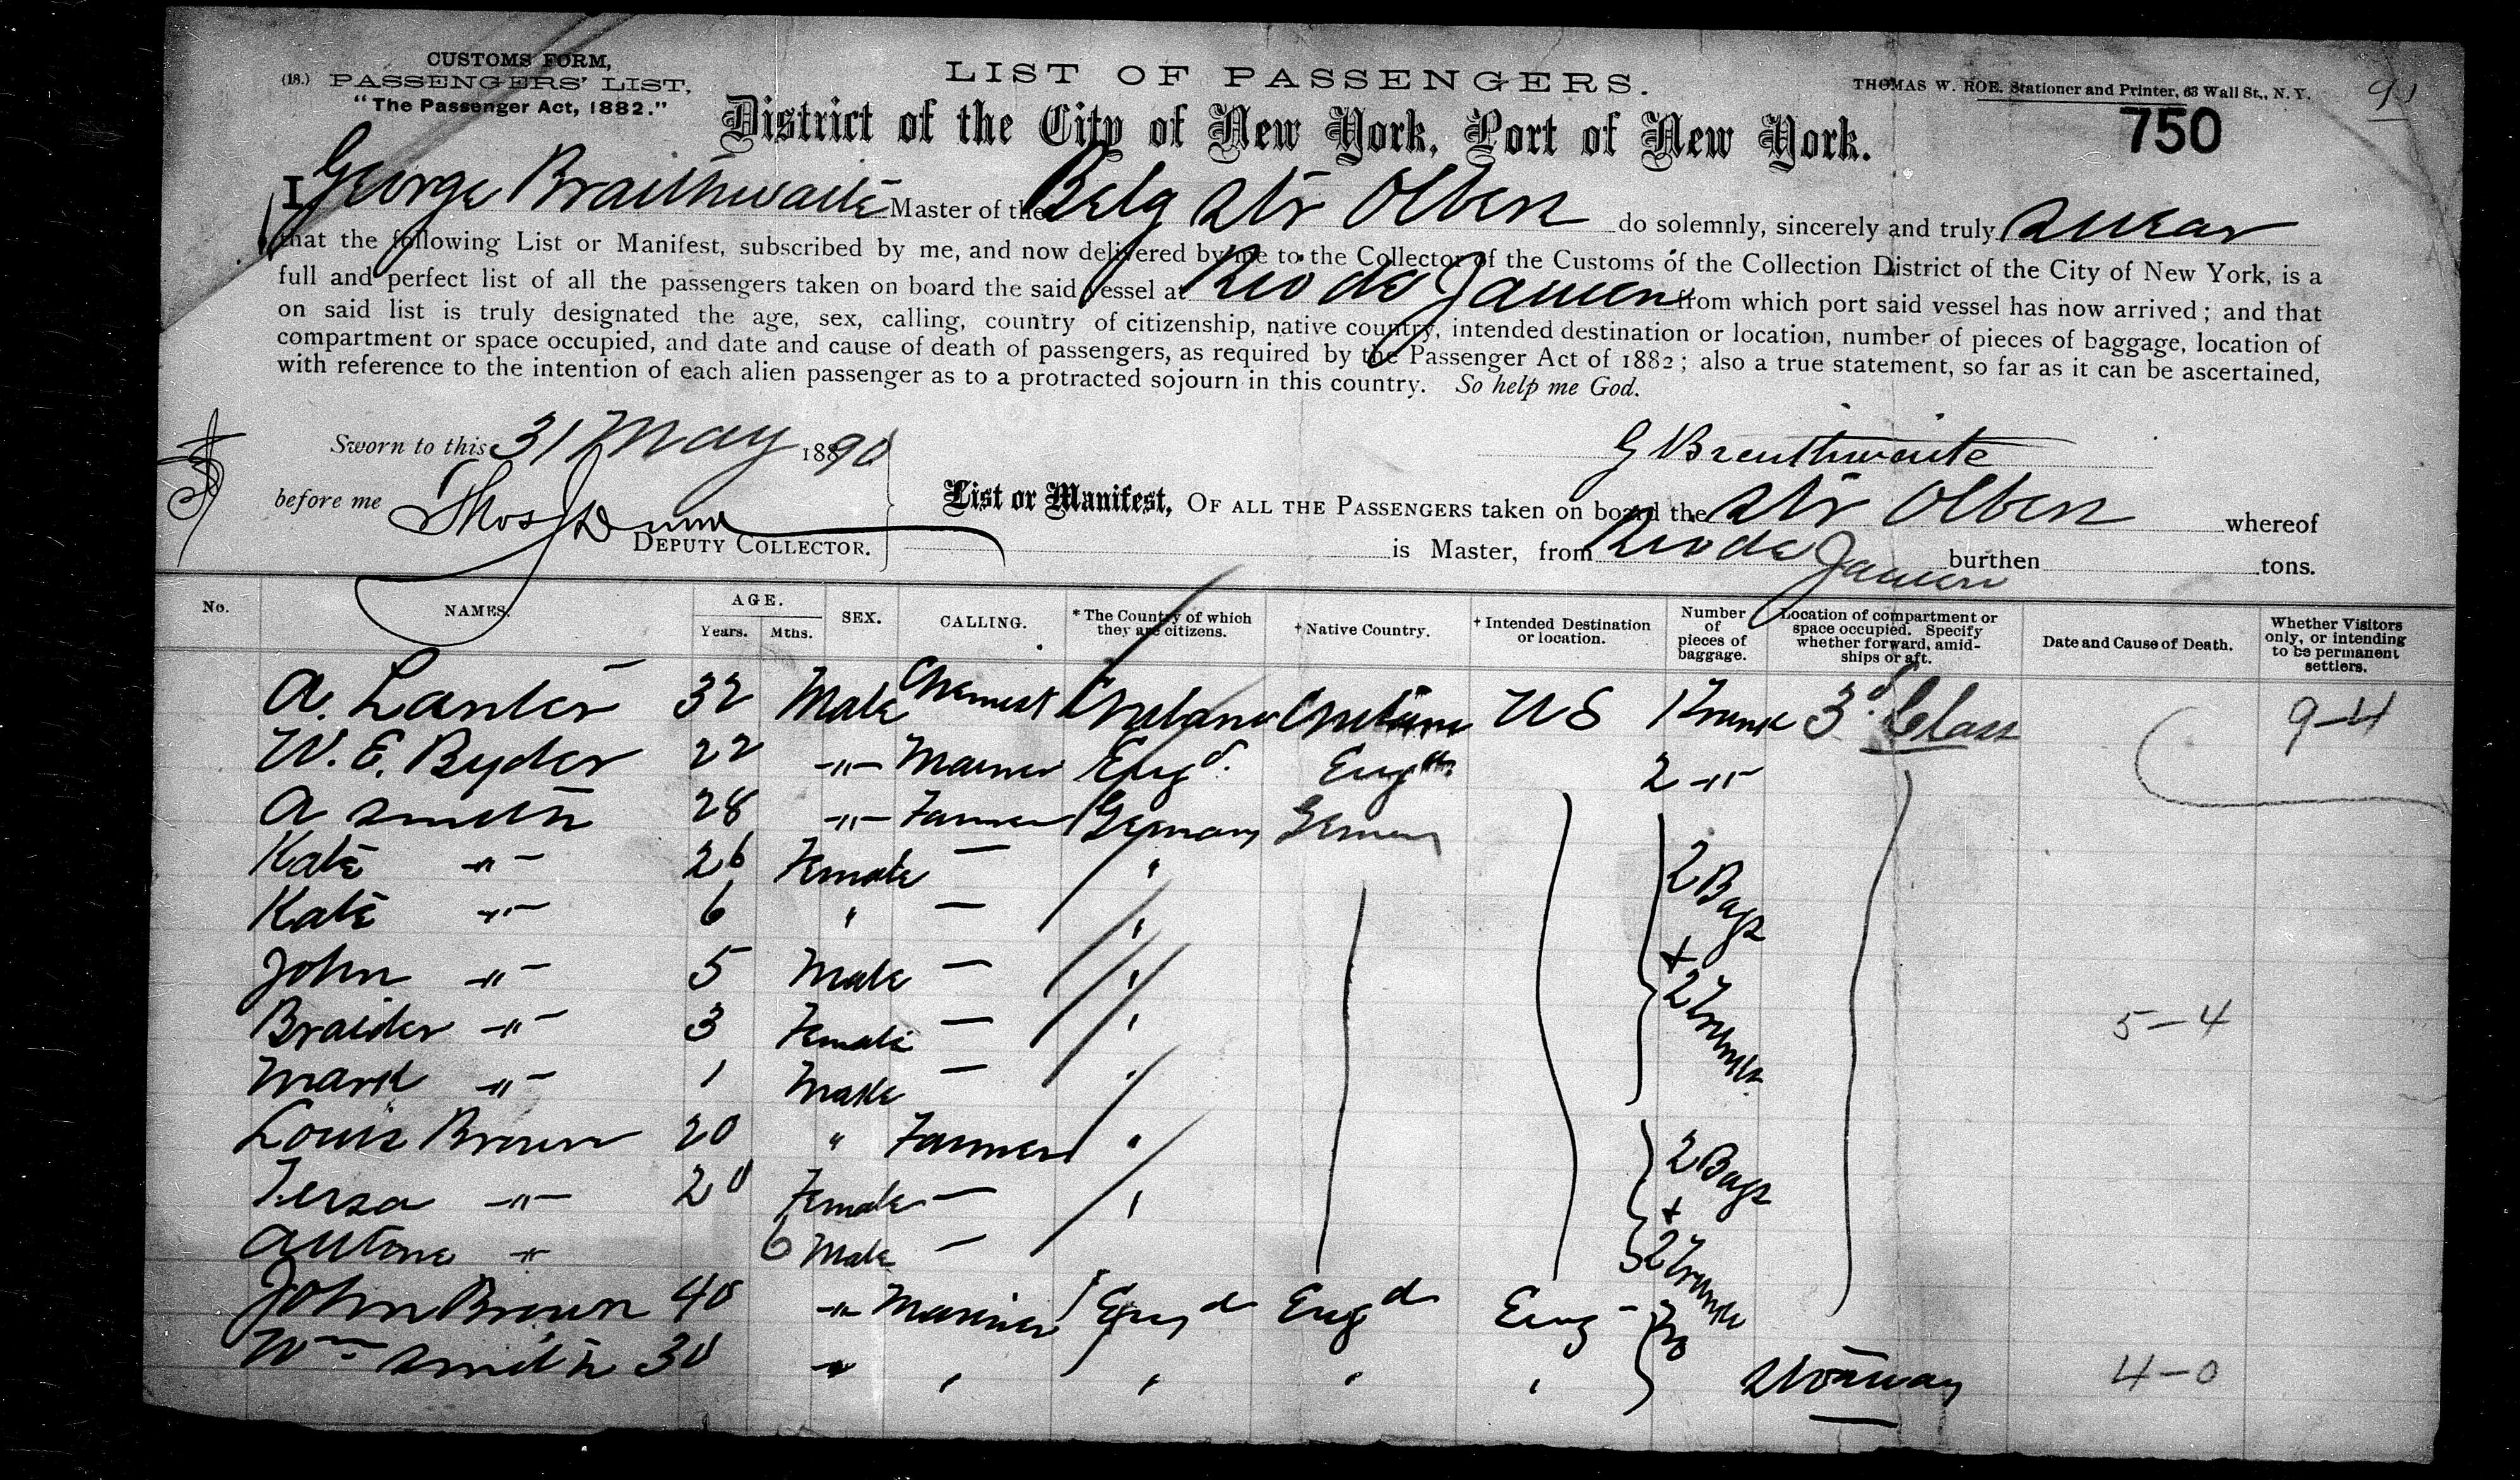 CUSTOMS FORM,
(18.) PASSENGERS' LIST,
"The Passenger Act, 1882."
LIST OF PASSENGERS.
THOMAS W. ROE. Stationer and Printer, 63 Wall St., N. Y.
91
District of the City of New York, Port of New York.
750
I George Braithwaite Master of the Belg Str Olbers do solemnly, sincerely and truly swear
that the following List or Manifest, subscribed by me, and now delivered by me to the Collector of the Customs of the Collection District of the City of New York, is a
full and perfect list of all the passengers taken on board the said vessel at Rio de Janeiro from which port said vessel has now arrived; and that
on said list is truly designated the age, sex, calling, country of citizenship, native country, intended destination or location, number of pieces of baggage, location of
compartment or space occupied, and date and cause of death of passengers, as required by the Passenger Act of 1882; also a true statement, so far as it can be ascertained,
with reference to the intention of each alien passenger as to a protracted sojourn in this country. So help me God.
Sworn to this 31 May 1890
G Braithwaite
before me Thos J Dunn
DEPUTY COLLECTOR.
List or Manifest, OF ALL THE PASSENGERS taken on board the Str Olbers whereof
is Master, from Rio de Janeiro burthen tons.
No. NAMES. AGE. Years. Mths. SEX. CALLING. * The Country of which they are citizens. + Native Country. + Intended Destination or location. Number of pieces of baggage. Location of compartment or space occupied. Specify whether forward, amidships or aft. Date and Cause of Death. Whether Visitors only, or intending to be permanent settlers.
A. Lanter 32 Male Chemist US 1 Trunk 3d Class 9-4
W. E. Byder 22 -"- Mariner Engd. Engd 2 -"-
A Smith 28 -"- Farmer Germany German
Kate -"- 26 Female — " 2 Bags
Kate -"- 6 " — "
John -"- 5 Male — " + 2 Trunks
Braider -"- 3 Female — " 5-4
Mark -"- 1 Male — "
Louis Brown 20 " Farmer " 2 Bags
Tersa -"- 20 Female — " +
Antone -"- 6 Male — 2 Trunks
John Brown 40 -"- Mariner Engd Engd Eng - no
Wm Smith 30 -"- " " " " Stowaway 4-0